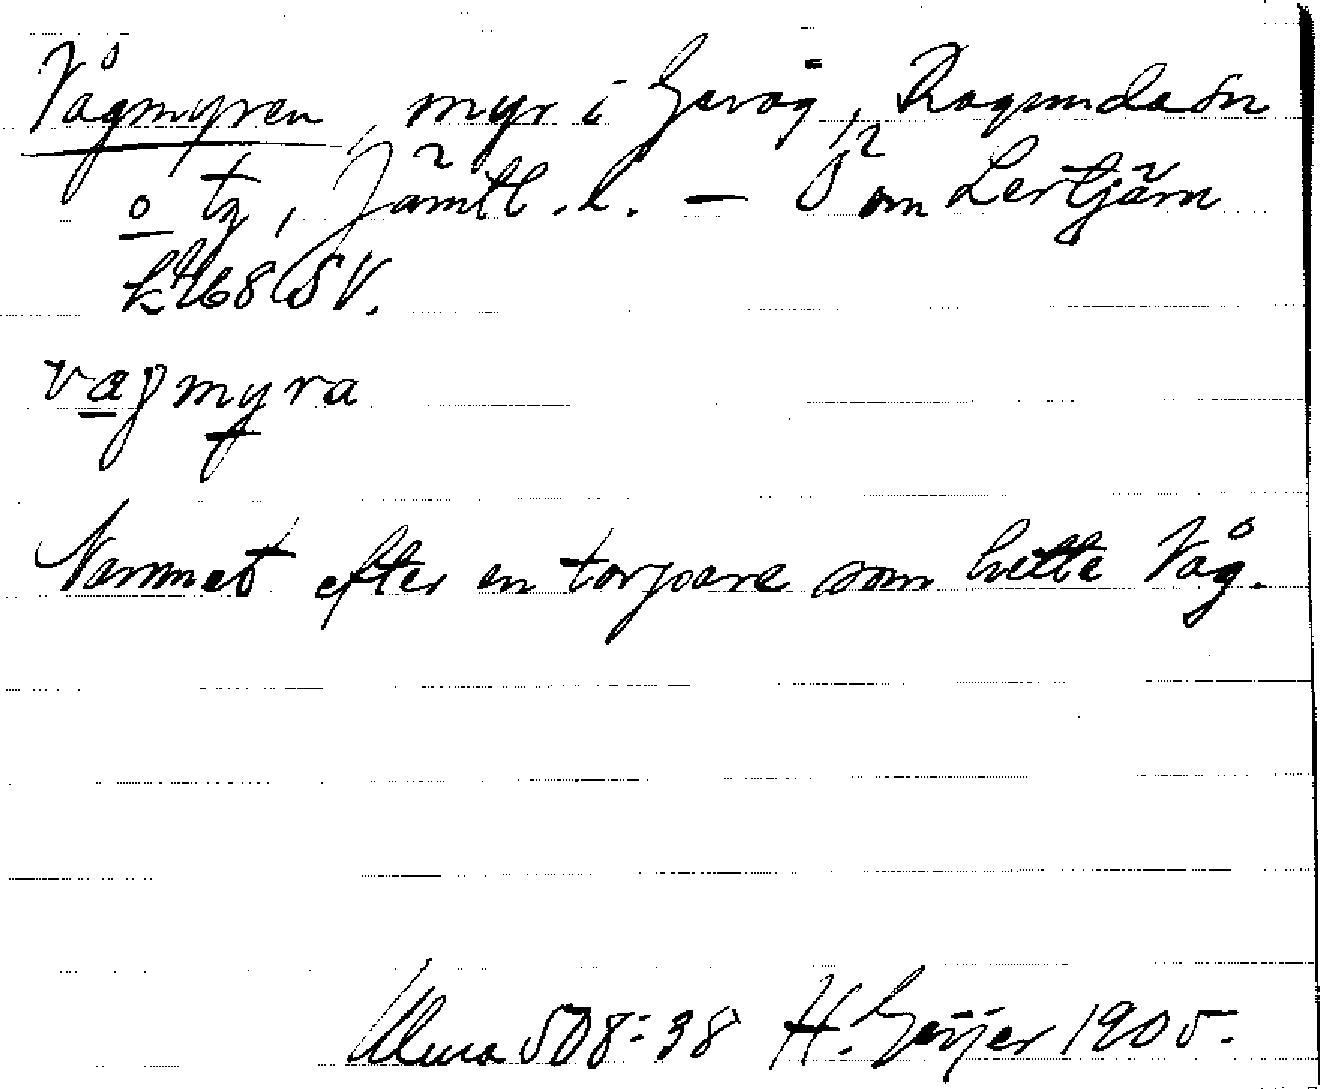 Vågmyren, myr i Gevåg, Ragunda sn
o tg, Jämtl. l. – Ö om Lertjärn
k 168 SV.
vagmyra
Namnet efter en torpare som hette Våg.
Ulma 508:38 H. Geijer 1905.